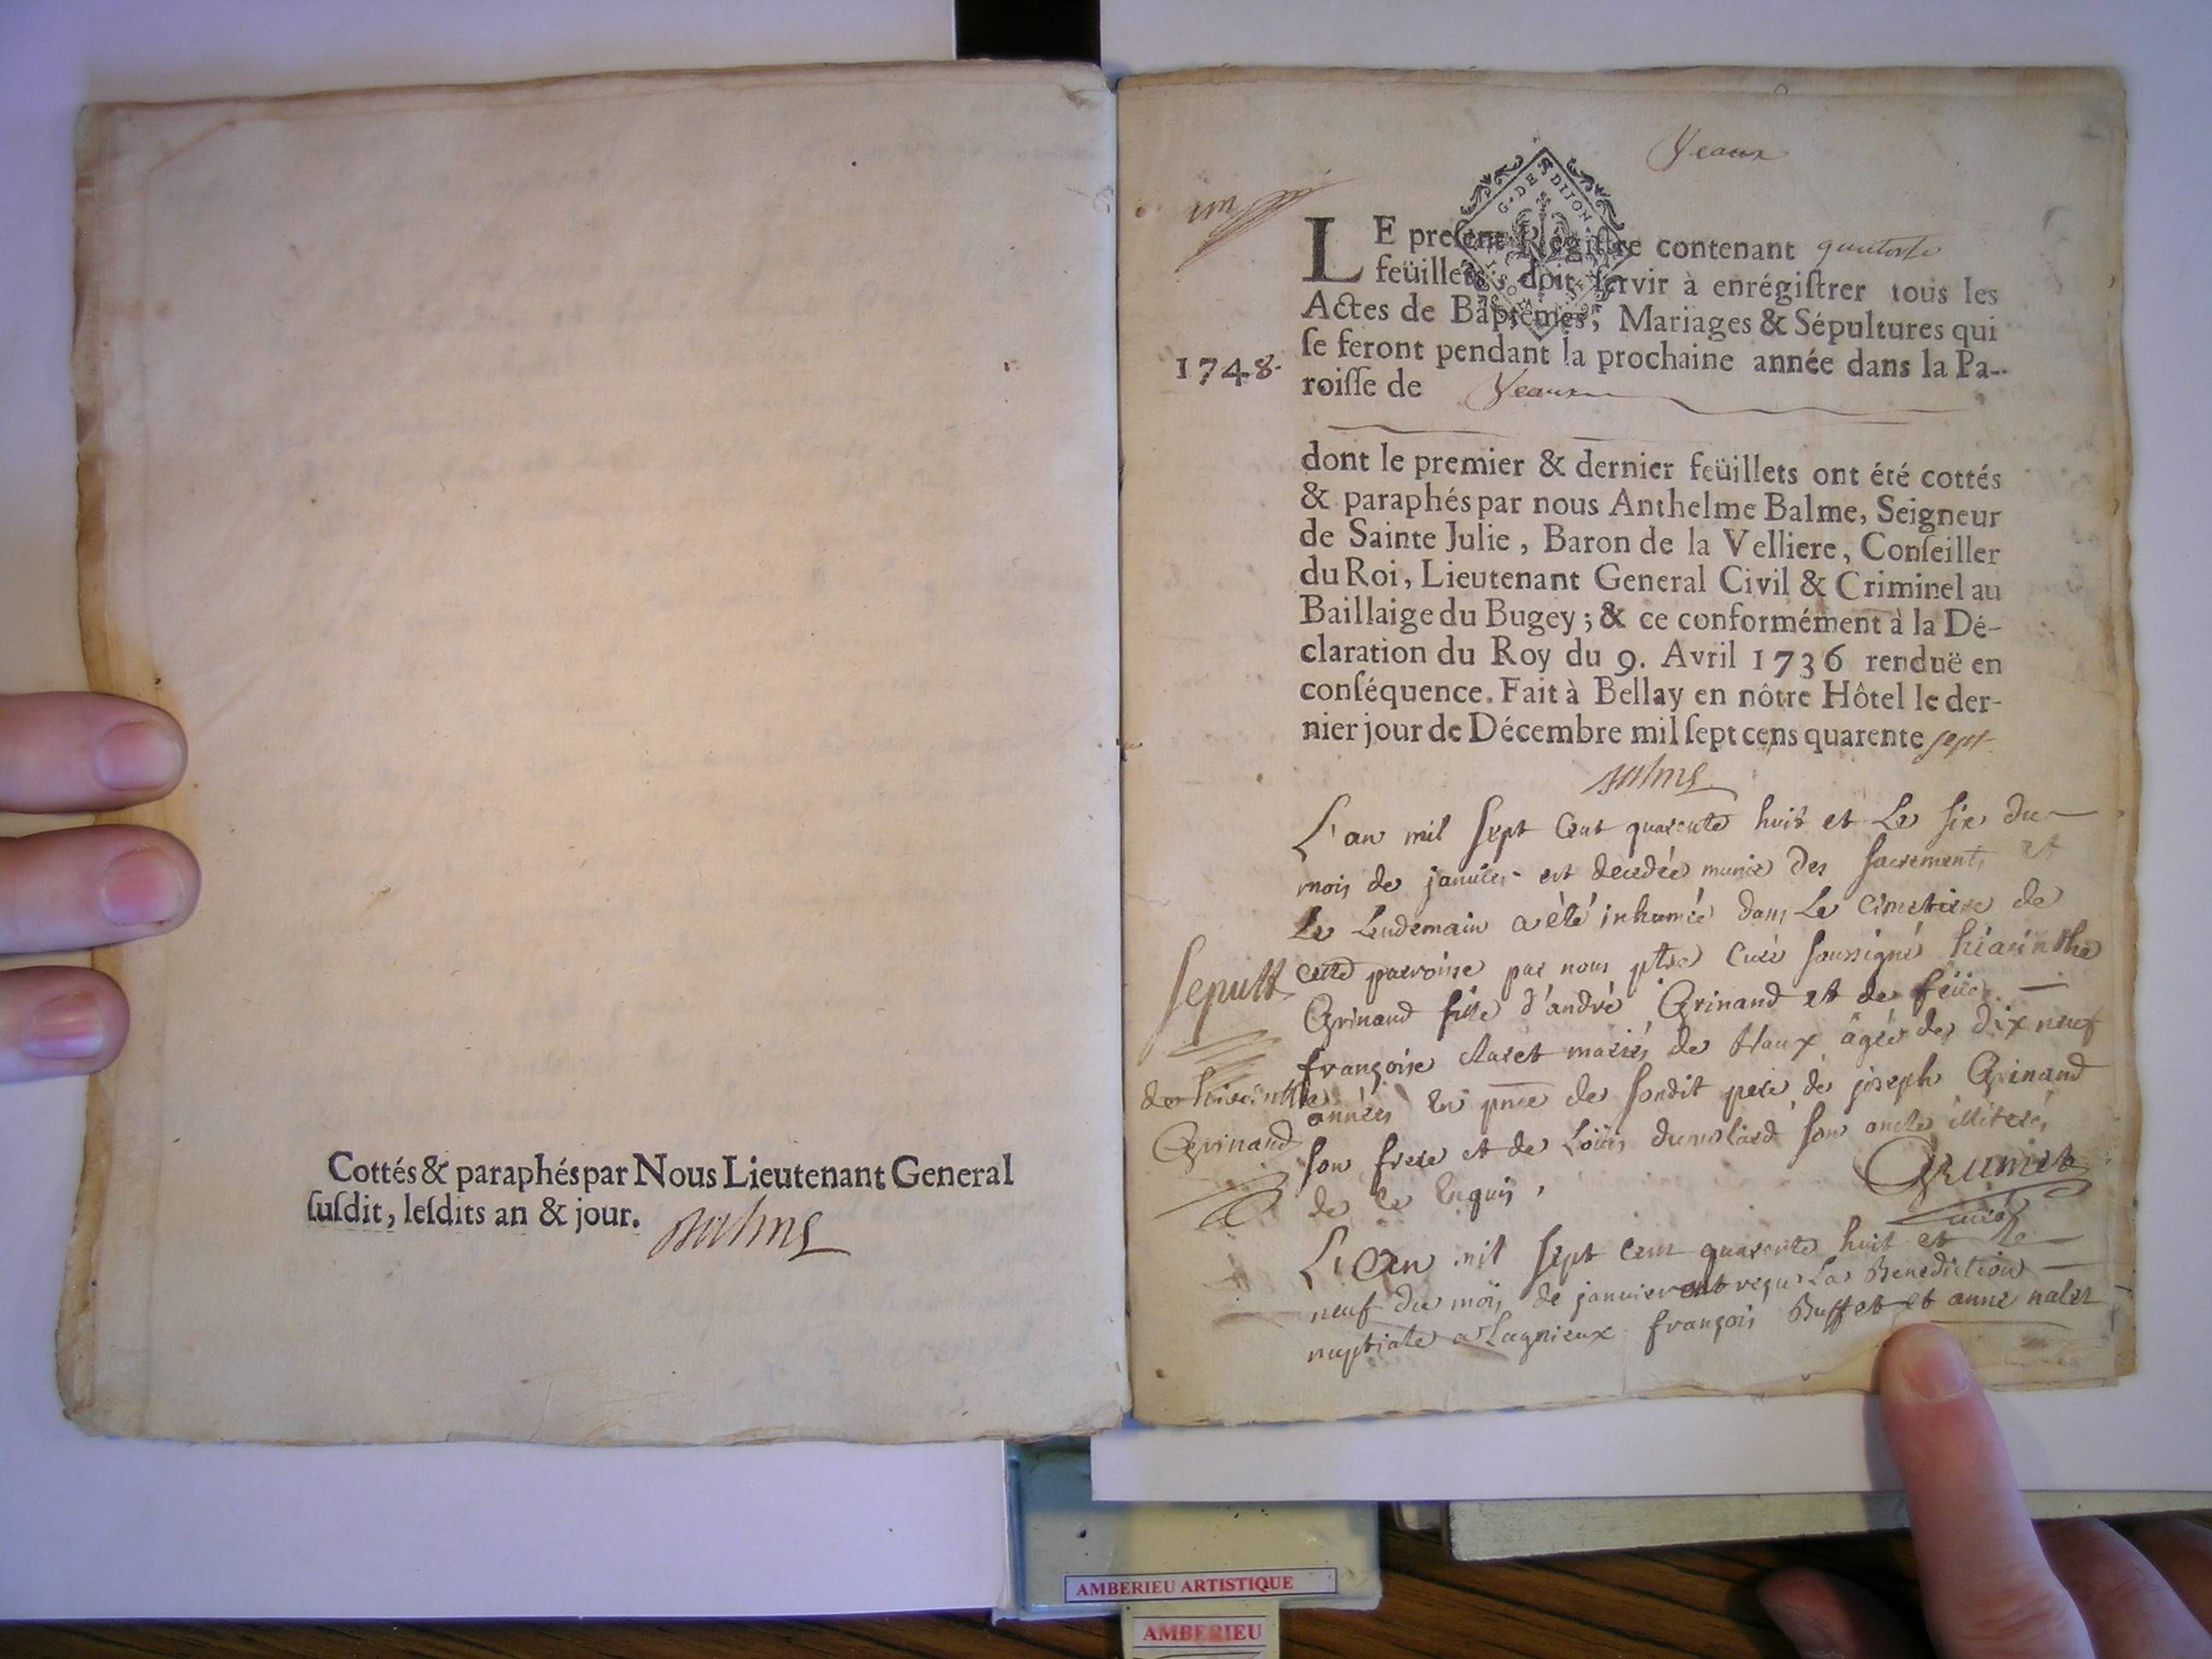 Cottés & paraphés par Nous Lieutenant General
ſuſdit, leſdits an & jour. Balme
Veaux
G. DE DIJON
LE preſent Régiſtre contenant quatorze
feüillets, doit ſervir à enrégiſtrer tous les
Actes de Baptêmes, Mariages & Sépultures qui
ſe feront pendant la prochaine année dans la Pa-
1748.
roiſſe de Veaux
dont le premier & dernier feüillets ont été cottés
& paraphés par nous Anthelme Balme, Seigneur
de Sainte Julie, Baron de la Velliere, Conſeiller
du Roi, Lieutenant General Civil & Criminel au
Baillaige du Bugey; & ce conformément à la Dé-
claration du Roy du 9. Avril 1736 renduë en
conſéquence. Fait à Bellay en nôtre Hôtel le der-
nier jour de Décembre mil ſept cens quarente sept
Balme
L'an mil sept cent quarente huit et le six du
mois de janvier est decedée munie des sacrements et
le lendemain a été inhumée dans le cimetiere de
cette parroisse par nous ptre curé soussigné hiacinthe
Grinand fille d'andré Grinand et de feüe
françoise claret mariés de Vaux âgée de dix neuf
années en pnce de sondit pere de joseph Grinand
son frere et de Loüis dumolard son oncle illiterés
de ce enquis,
Grumet
curé
sepult
de hiacinthe
Grinand
L'an mil sept cent quarente huit et le
neuf du mois de janvier ont reçu la Benediction
nuptiale a Lagnieux françois Buffet et anne nalet
AMBERIEU ARTISTIQUE
AMBERIEU